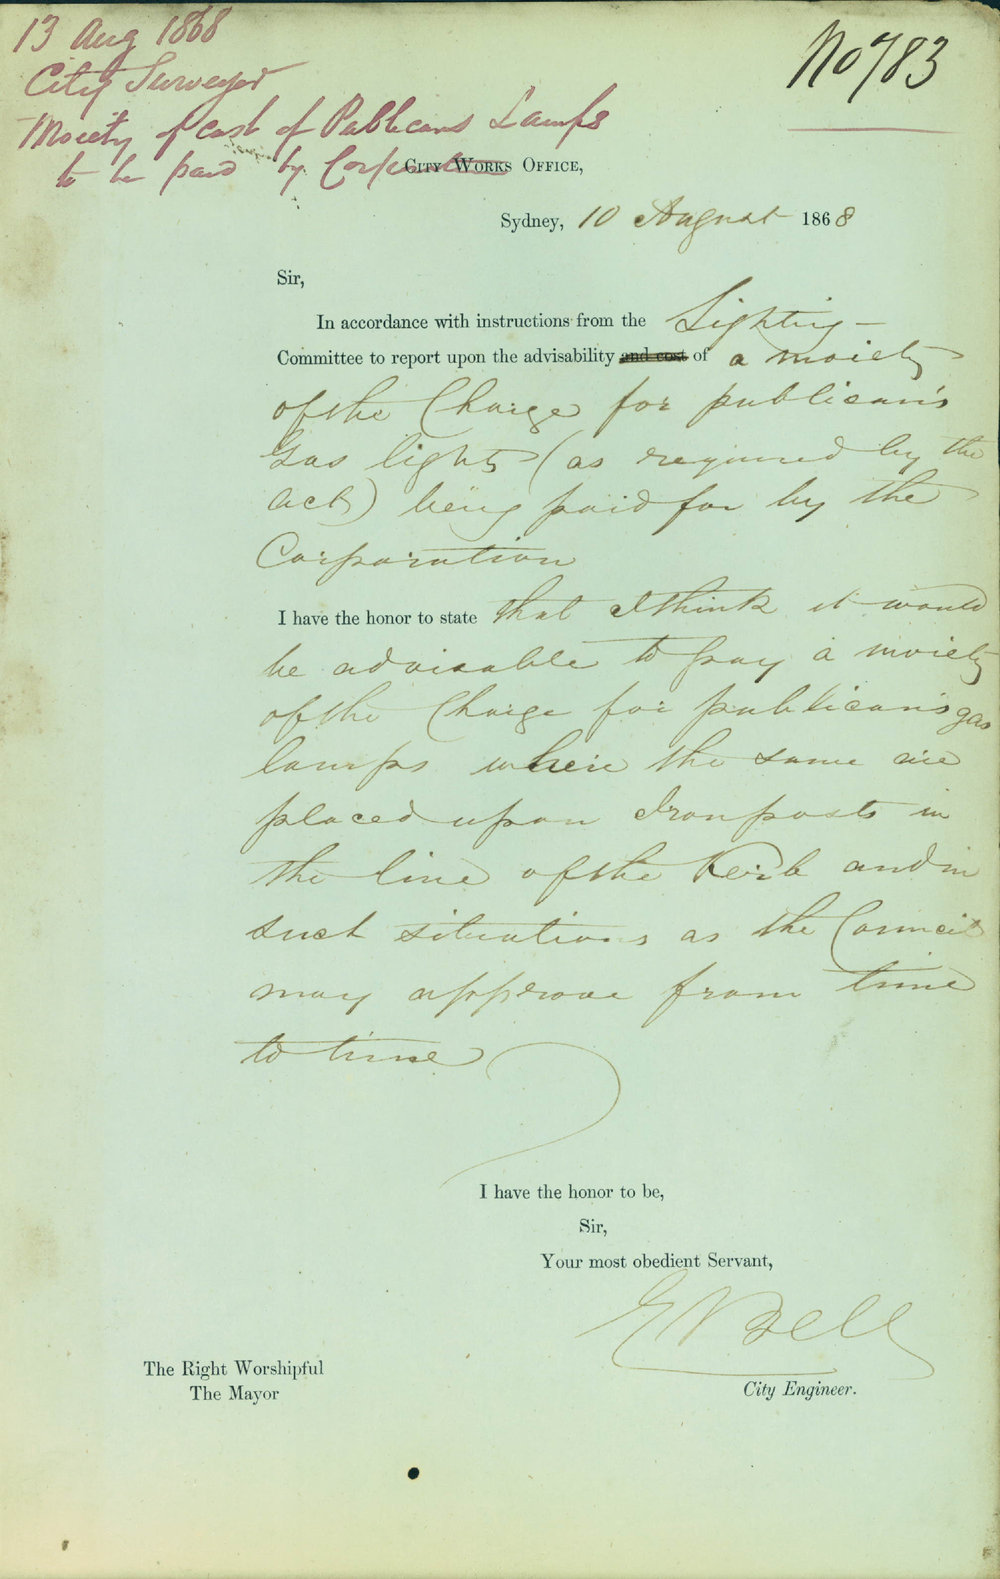 13 Aug 1868
City Surveyor
Moiety of cost of Publicans Lamps
to be paid by Corporation
No 783
City Works Office,
Sydney, 10 August 1868
Sir,
In accordance with instructions from the Lighting
Committee to report upon the advisability and cost of a moiety
of the Charge for publican's
Gas lights (as required by the
act) being paid for by the
Corporation
I have the honor to state that I think it would
be advisable to pay a moiety
of the Charge for publican's gas
lamps where the same are
placed upon Iron posts in
the line of the Kerb and in
such situations as the Council
may approve from time
to time
I have the honor to be,
Sir,
Your most obedient Servant,
E Bell
City Engineer.
The Right Worshipful
The Mayor